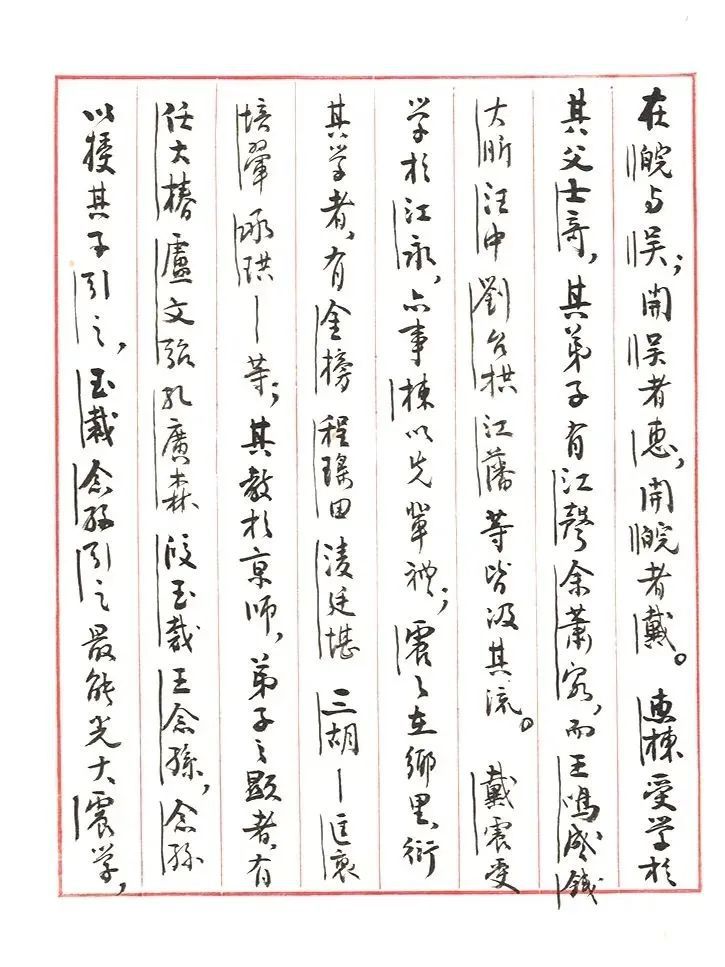 在皖与吴；開吴者惠，開皖者戴。惠棟受学於
其父士奇，其弟子有江聲余蕭客，而王鳴盛錢
大昕汪中劉台拱江藩等皆汲其流。戴震受
学於江永，亦事棟以先輩禮；震之在鄉里，衍
其学者，有金榜程瑤田凌廷堪三胡—匡衷
培翬承珙—等；其教於京师，弟子之顯者，有
任大椿盧文弨孔廣森段玉裁王念孫，念孫
以授其子引之，玉裁念孫引之最能光大震学，